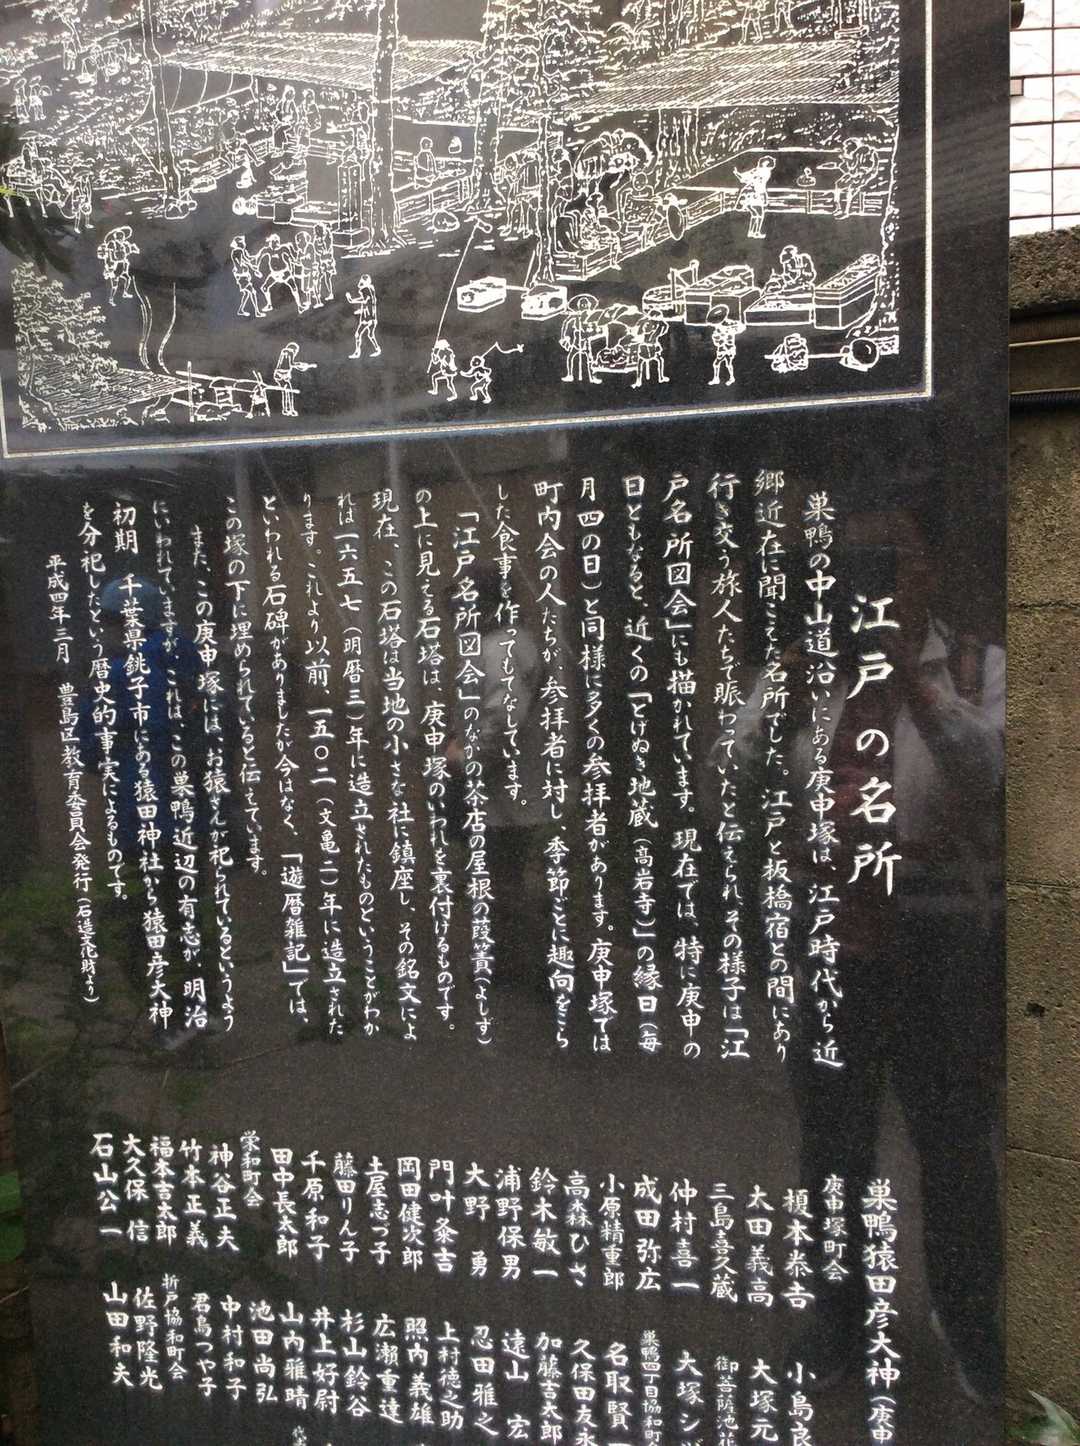 江戸の名所
巣鴨の中山道沿いにある庚申塚は、江戸時代から近
郷近在に聞こえた名所でした。江戸と板橋宿との間にあり
行き交う旅人たちで賑わっていたと伝えられ、その様子は「江
戸名所図会」にも描かれています。現在では、特に庚申の
日ともなると、近くの「とげぬき地蔵（高岩寺）」の縁日（毎
月四の日）と同様に多くの参拝者があります。庚申塚では
町内会の人たちが、参拝者に対し、季節ごとに趣向をこら
した食事を作ってもてなしています。
「江戸名所図会」のなかの茶店の屋根の葭簀（よしず）
の上に見える石塔は、庚申塚のいわれを裏付けるものです。
現在、この石塔は当地の小さな社に鎮座し、その銘文によ
れば一六五七（明暦三）年に造立されたものということがわか
ります。これより以前、一五〇二（文亀二）年に造立された
といわれる石碑がありましたが今はなく、「遊暦雑記」では、
この塚の下に埋められていると伝えています。
また、この庚申塚には、お猿さんが祀られているというよう
にいわれていますが、これは、この巣鴨近辺の有志が 明治
初期 千葉県銚子市にある猿田神社から猿田彦大神
を分祀したという歴史的事実によるものです。
平成四年三月 豊島区教育委員会発行（石造文化財より）
巣鴨猿田彦大神（庚申
庚申塚町会
榎本泰吉
太田義高
三島喜久蔵
仲村喜一
成田弥広
小原精重郎
高森ひさ
鈴木敏一
浦野保男
大野 勇
門叶粂吉
岡田健次郎
土屋志づ子
藤田りん子
千原和子
田中長太郎
栄和町会
神谷正夫
竹本正義
福本吉太郎
大久保 信
石山公一
小島良
大塚元
御菩薩池花
大塚シヅ
巣鴨四丁目協和町会
名取賢一
久保田友永
加藤吉太郎
遠山 宏
忍田雅之
上村徳之助
照内義雄
広瀬重達
杉山鈴谷
井上好尉
山内雅晴
池田尚弘
中村和子
君島つや子
折戸協和町会
佐野隆光
山田和夫